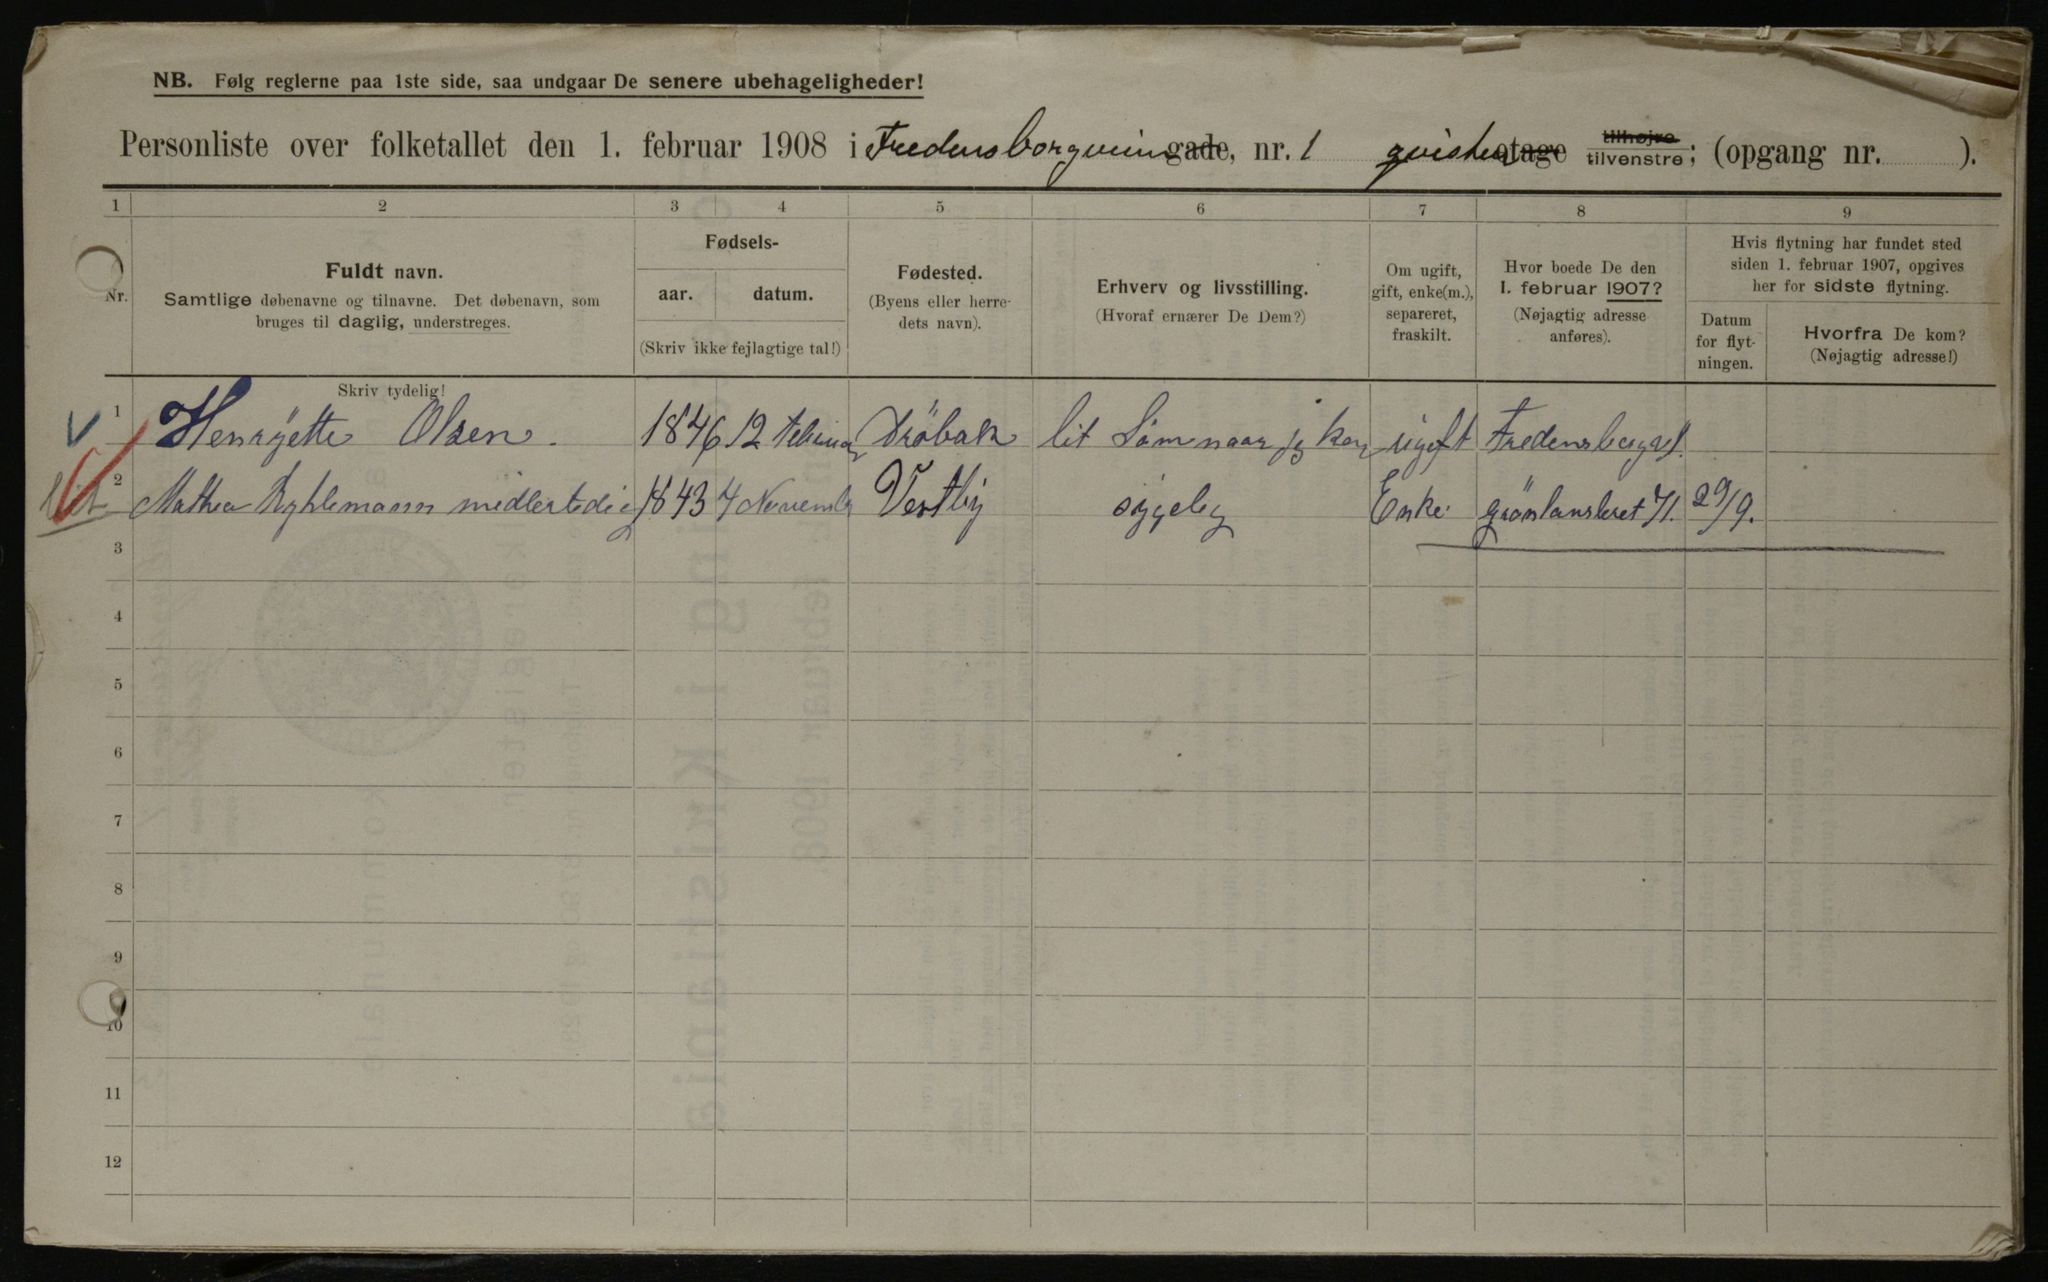 NB. Følg reglerne paa 1ste side, saa undgaar De senere ubehageligheder!
Personliste over folketallet den 1. februar 1908 i Fredensborgveien gade, nr. 1 qvisten etage tilhøjre tilvenstre; (opgang nr. ).
1 2 3 4 5 6 7 8 9
Nr.
Fuldt navn.
Samtlige døbenavne og tilnavne. Det døbenavn, som
bruges til daglig, understreges.
Skriv tydelig!
Fødsels-
aar. datum.
(Skriv ikke fejlagtige tal!)
Fødested.
(Byens eller herre-
dets navn).
Erhverv og livsstilling.
(Hvoraf ernærer De Dem?)
Om ugift,
gift, enke(m.),
separeret,
fraskilt.
Hvor boede De den
1. februar 1907?
(Nøjagtig adresse
anføres).
Hvis flytning har fundet sted
siden 1. februar 1907, opgives
her for sidste flytning.
Datum
for flyt-
ningen.
Hvorfra De kom?
(Nøjagtig adresse!)
1 Henryette Olsen. 1846 12 Februar Dröbak lit Søm naar jeg kan ugift Fredensborgv 1.
2 Mathea medlertedig 1843 4 Novemb Vestby sygelig Enke grönlansleret 71. 29/9.
3
4
5
6
7
8
9
10
11
12